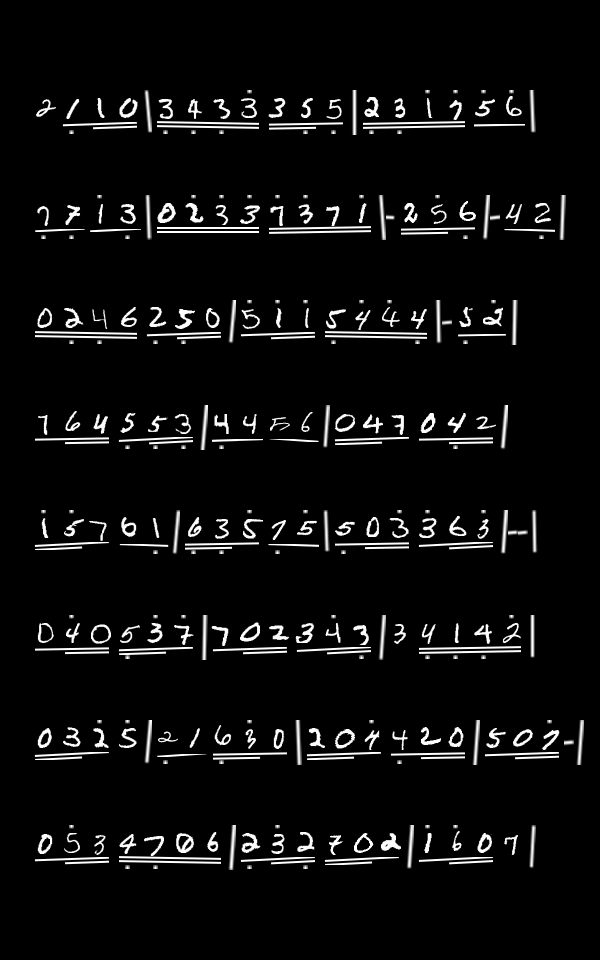 2 1 1 0 | 3 4 3 3 3 5 5 | 2 3 1 7 5 6 |
7 7 1 3 | 0 2 3 3 7 3 7 1 | - 2 5 6 | - 4 2 |
0 2 4 6 2 5 0 | 5 1 1 5 4 4 4 | - 5 2 |
7 6 4 5 5 3 | 4 4 5 6 | 0 4 7 0 4 2 |
1 5 7 6 1 | 6 3 5 7 5 | 5 0 3 3 6 3 | - - |
0 4 0 5 3 7 | 7 0 2 3 4 3 | 3 4 1 4 2 |
0 3 2 5 | 2 1 6 3 0 | 2 0 4 4 2 0 | 5 0 7 - |
0 5 3 4 7 0 6 | 2 3 2 7 0 2 | 1 6 0 7 |